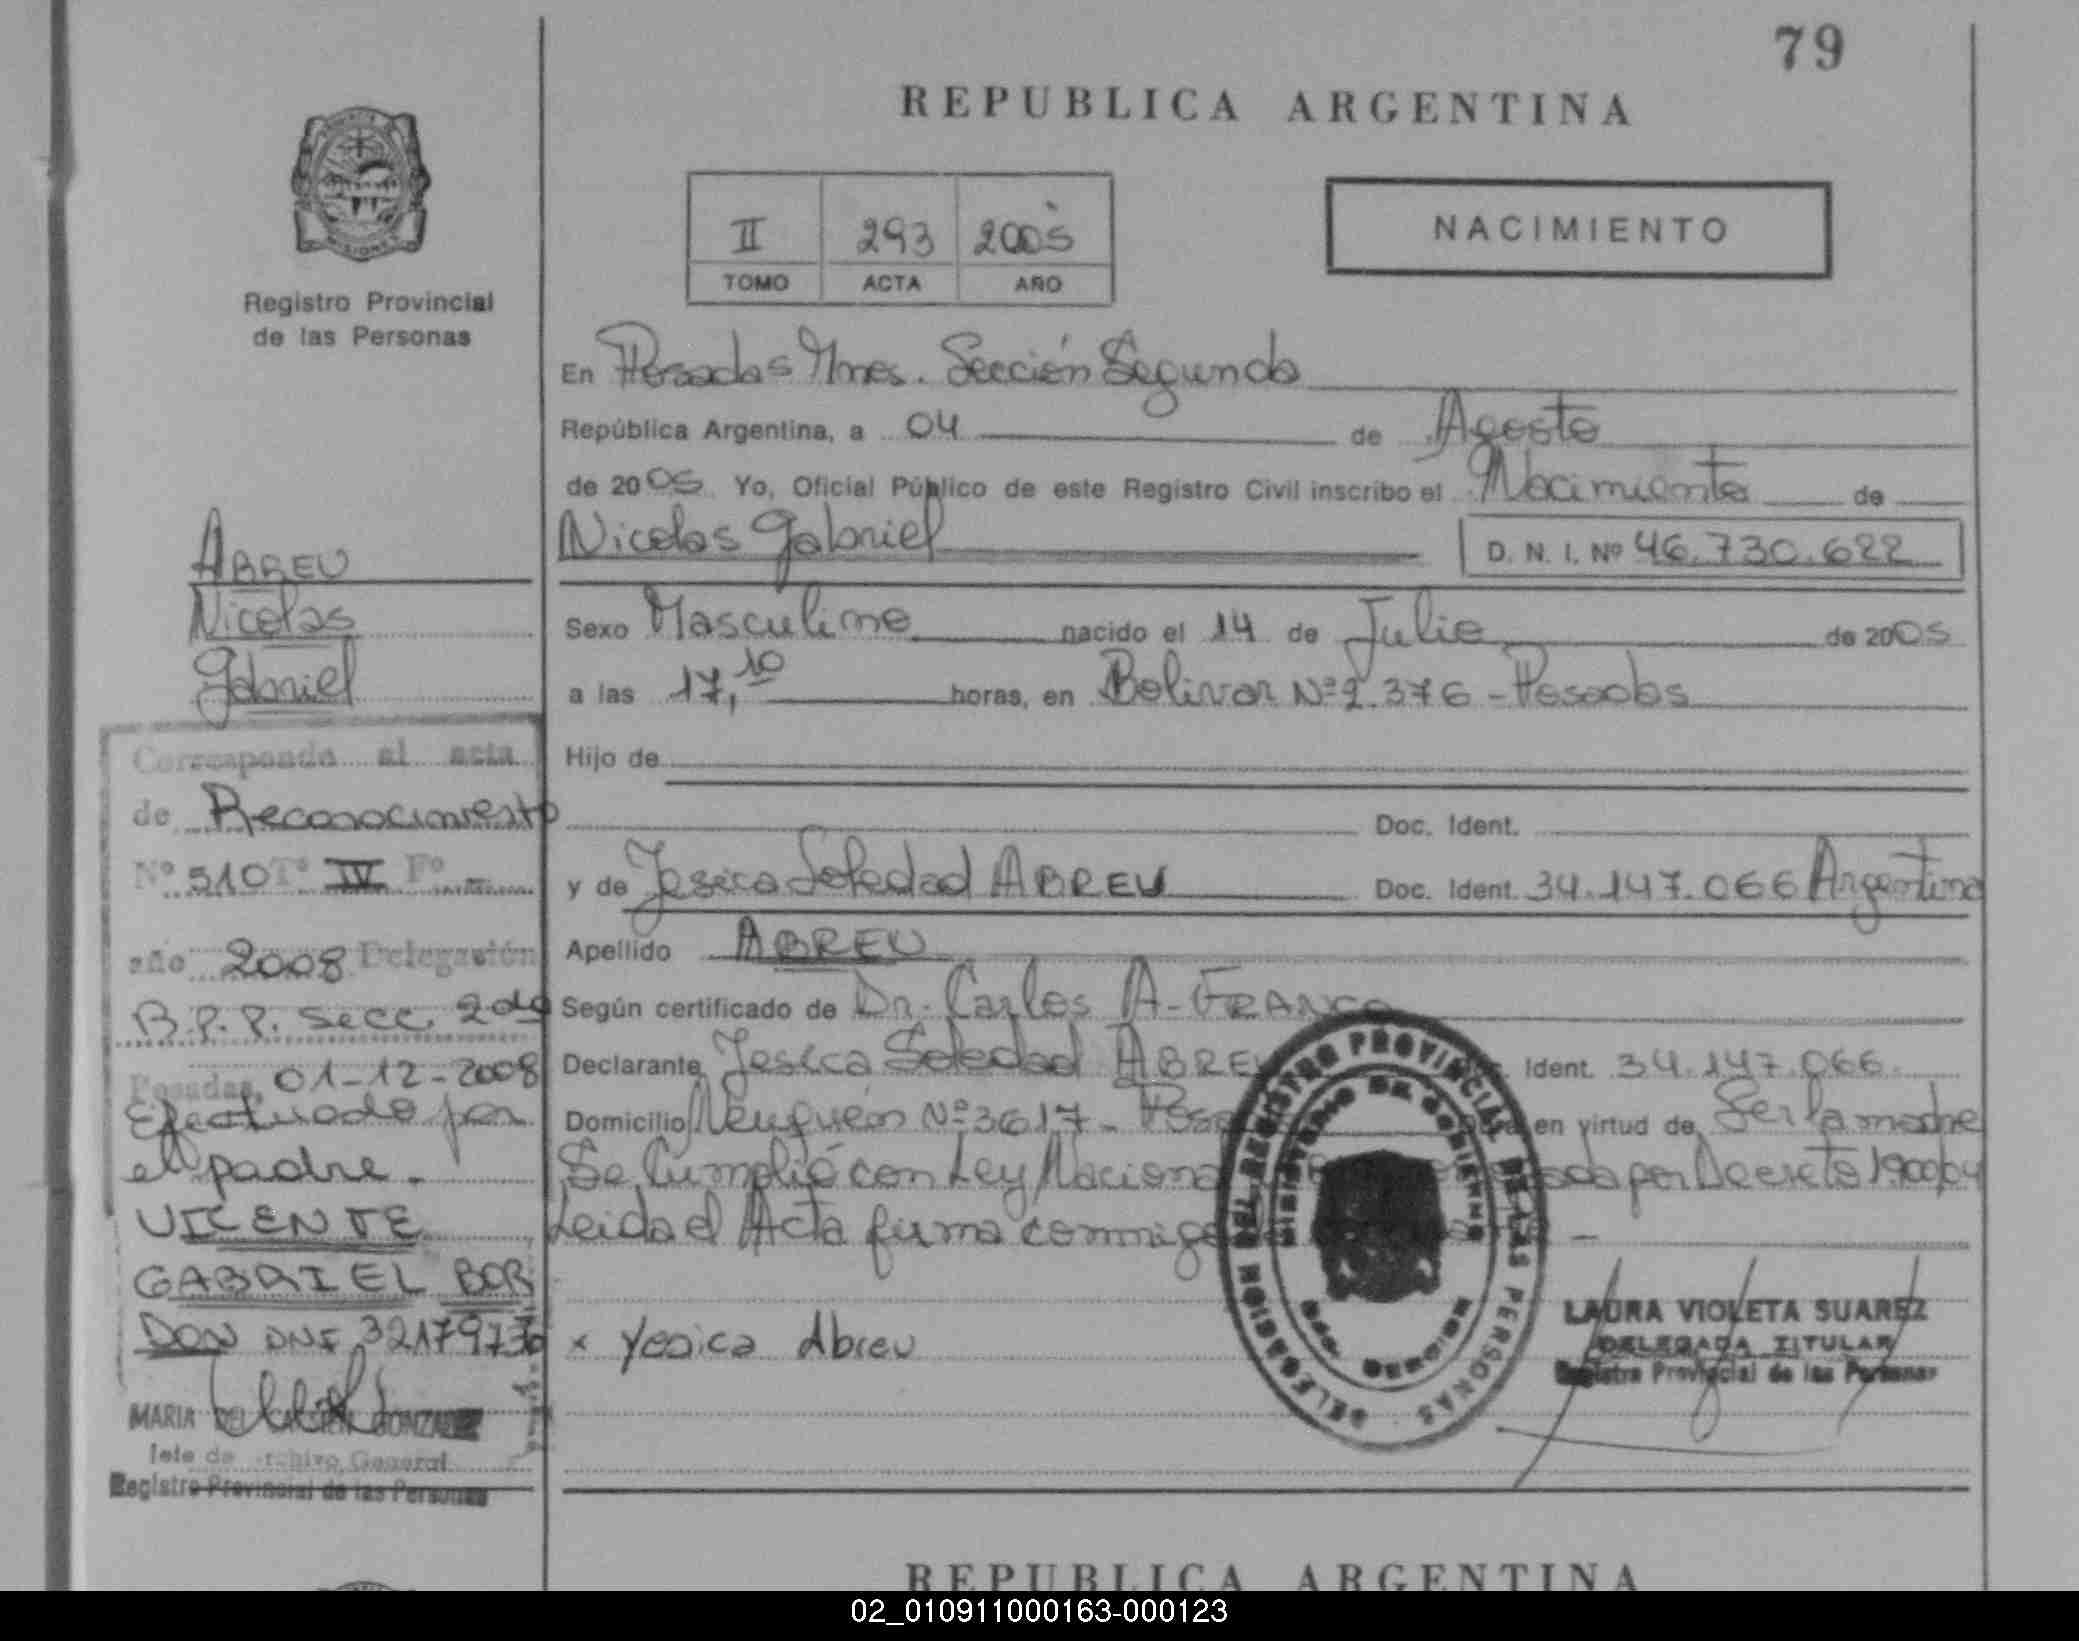 79
REPUBLICA ARGENTINA
II 293 2005
TOMO ACTA AÑO
NACIMIENTO
MISIONES
Registro Provincial
de las Personas
En Posadas Mnes. Sección Segunda
República Argentina, a 04 de Agosto
de 2005 Yo, Oficial Público de este Registro Civil inscribo el Nacimiento de
Nicolas Gabriel D. N. I. Nº 46.730.622
Sexo Masculino nacido el 14 de Julio de 2005
a las 17,10 horas, en Bolivar Nº 2.376 - Posadas
Hijo de
Doc. Ident.
y de Jesica Soledad ABREU Doc. Ident. 34.147.066 Argentina
Apellido ABREU
Según certificado de Dr. Carlos A. FRANCO
Declarante Jesica Soledad ABREU Ident. 34.147.066
Domicilio Neuquén Nº 3617 - en virtud de Ser la madre
Se Cumplió con Ley Nacional por Decreto 1900/04
Leida el Acta firma conmigo
x Yesica Abreu
DELEGACION DEL REGISTRO PROVINCIAL DE LAS PERSONAS
MINISTERIO DE GOBIERNO
LAURA VIOLETA SUAREZ
DELEGADA TITULAR
Registro Provincial de las Personas
ABREU
Nicolas
Gabriel
Corresponde al acta
de Reconocimiento
Nº 510 Tº IV Fº -
año 2008 Delegación
R.P.P. Secc. 2da
Posadas, 01-12-2008
Efectuado por
el padre.
VICENTE
GABRIEL BOR
DON DNI 32179730
MARIA DEL GONZALEZ
Jefe de Archivo General
Registro Provincial de las Personas
REPUBLICA ARGENTINA
02_010911000163-000123